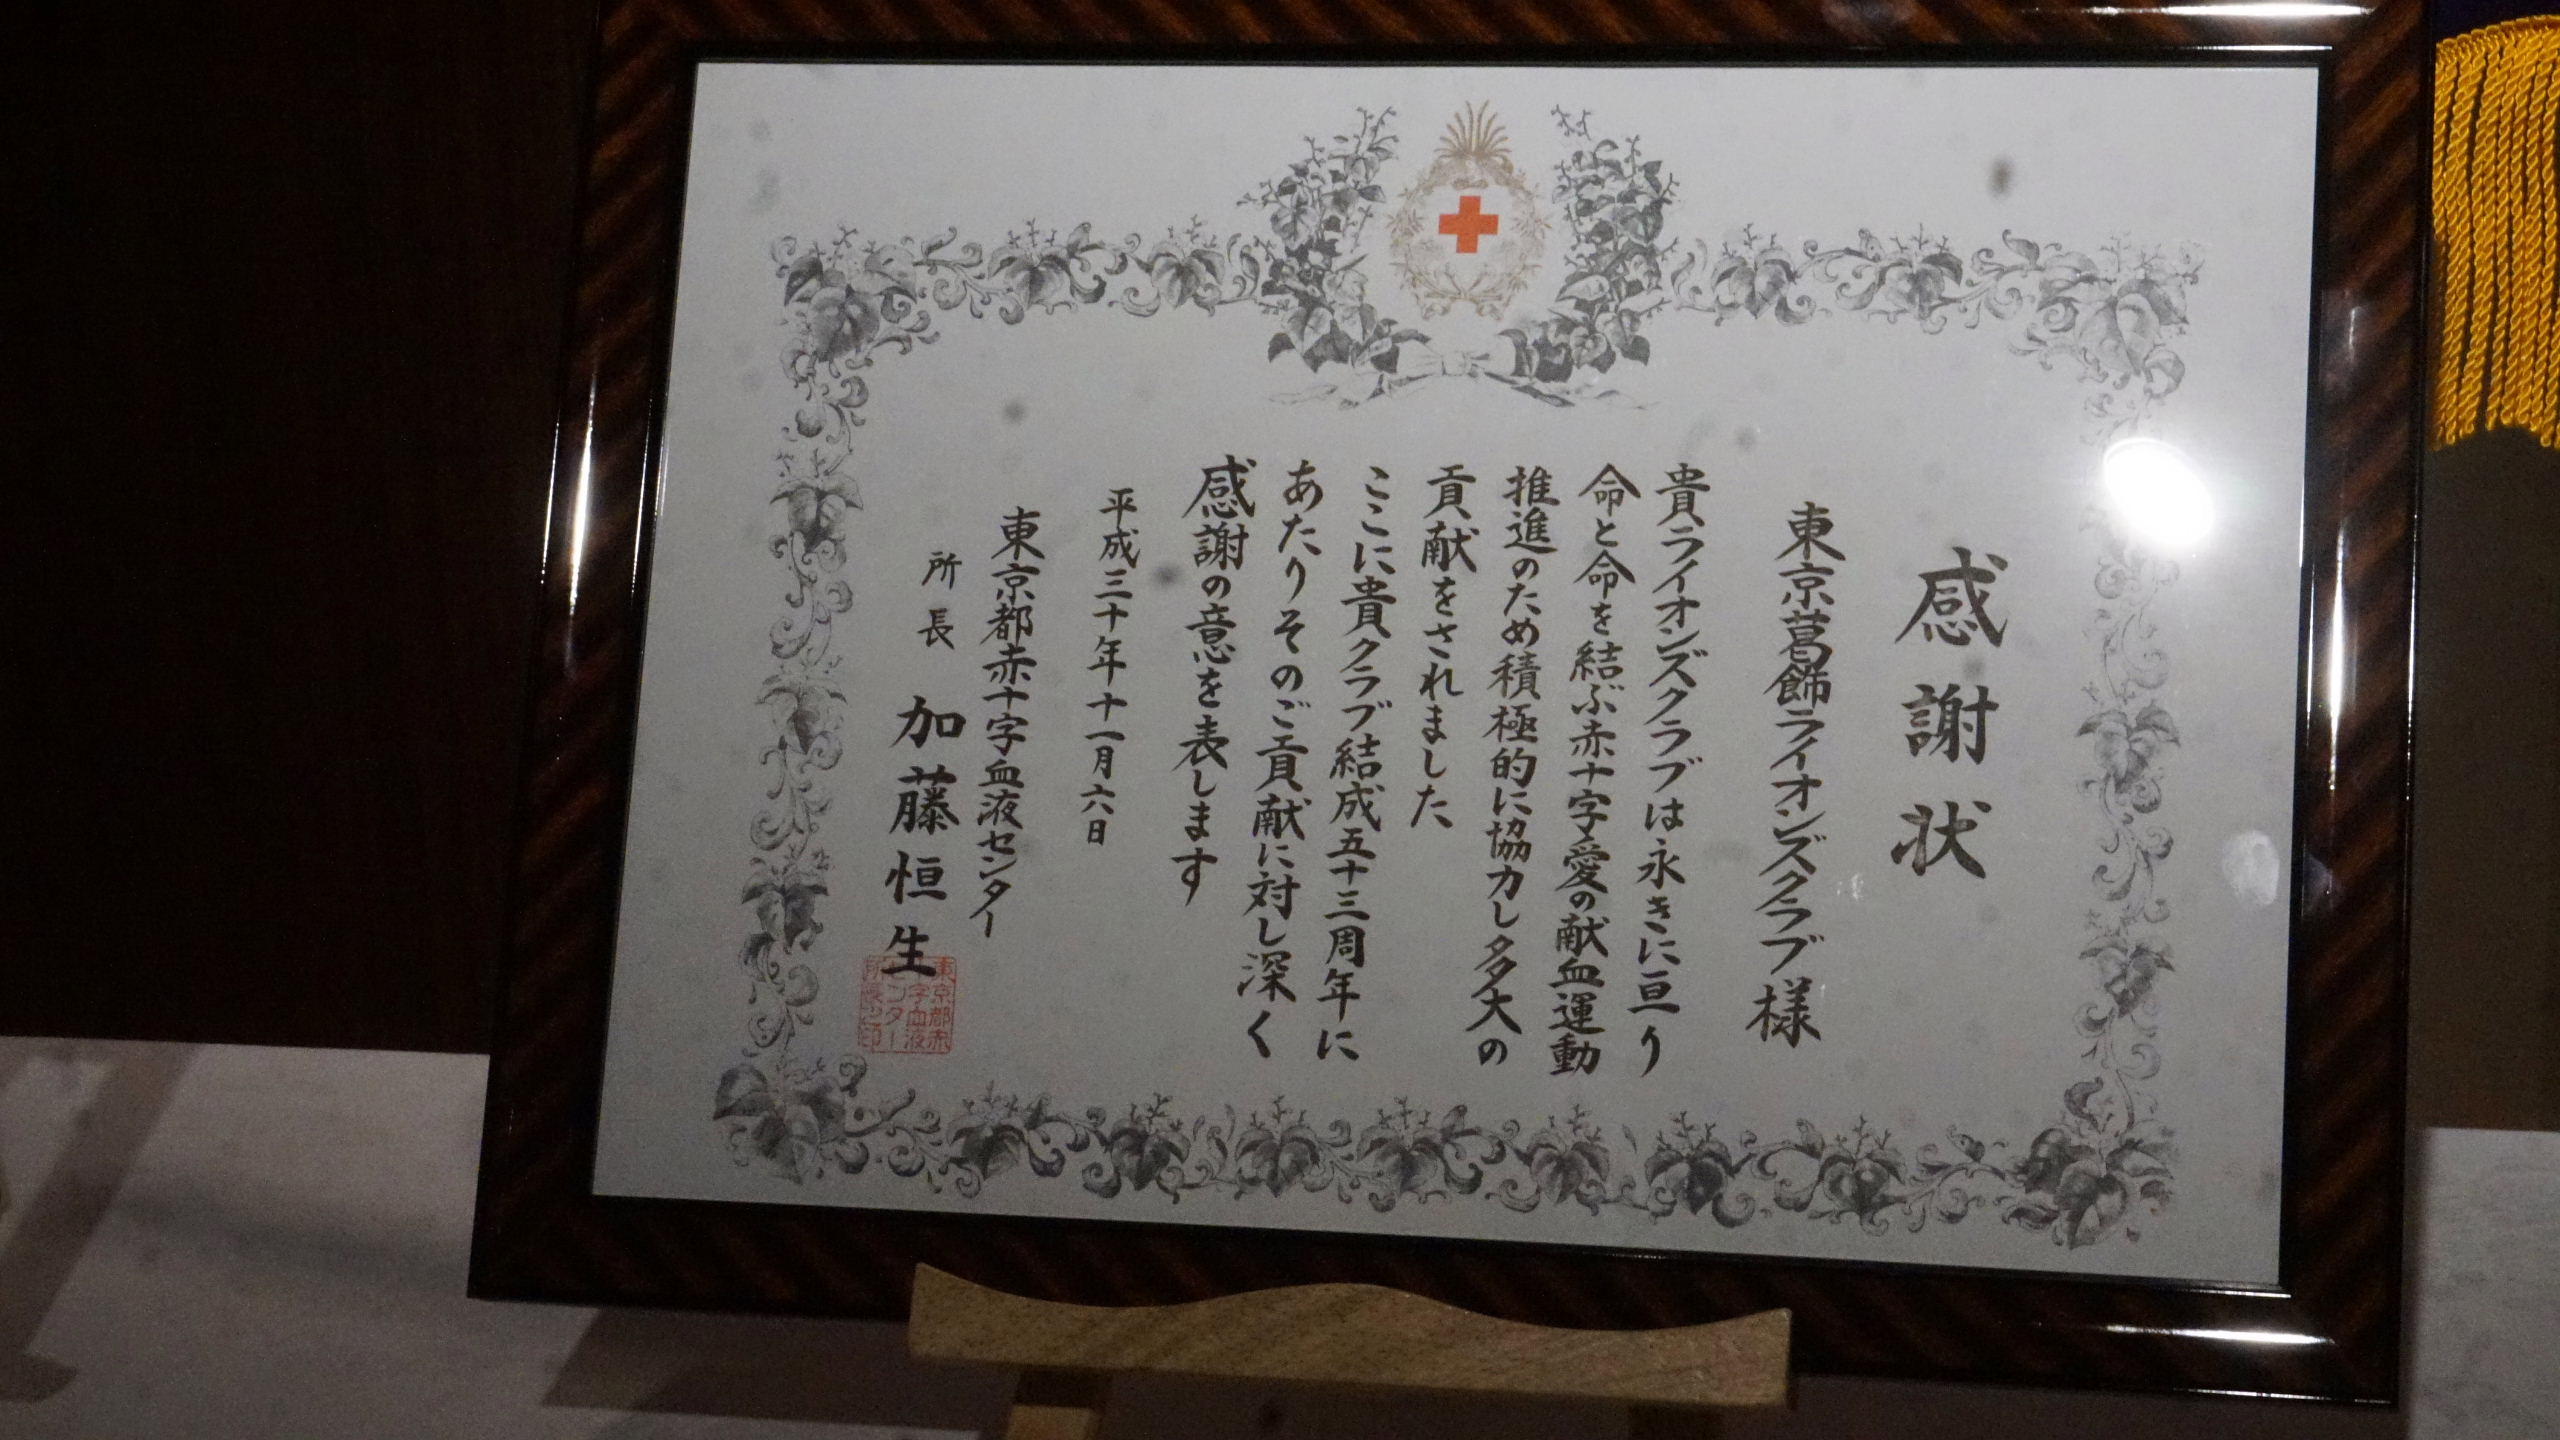 感謝状
東京葛飾ライオンズクラブ様
貴ライオンズクラブは永きに亘り
命と命を結ぶ赤十字愛の献血運動
推進のため積極的に協力し多大の
貢献をされました
ここに貴クラブ結成五十三周年に
あたりそのご貢献に対し深く
感謝の意を表します
平成三十年十一月六日
東京都赤十字血液センター
所長 加藤恒生
東京都赤
十字血液
センター
所長之印